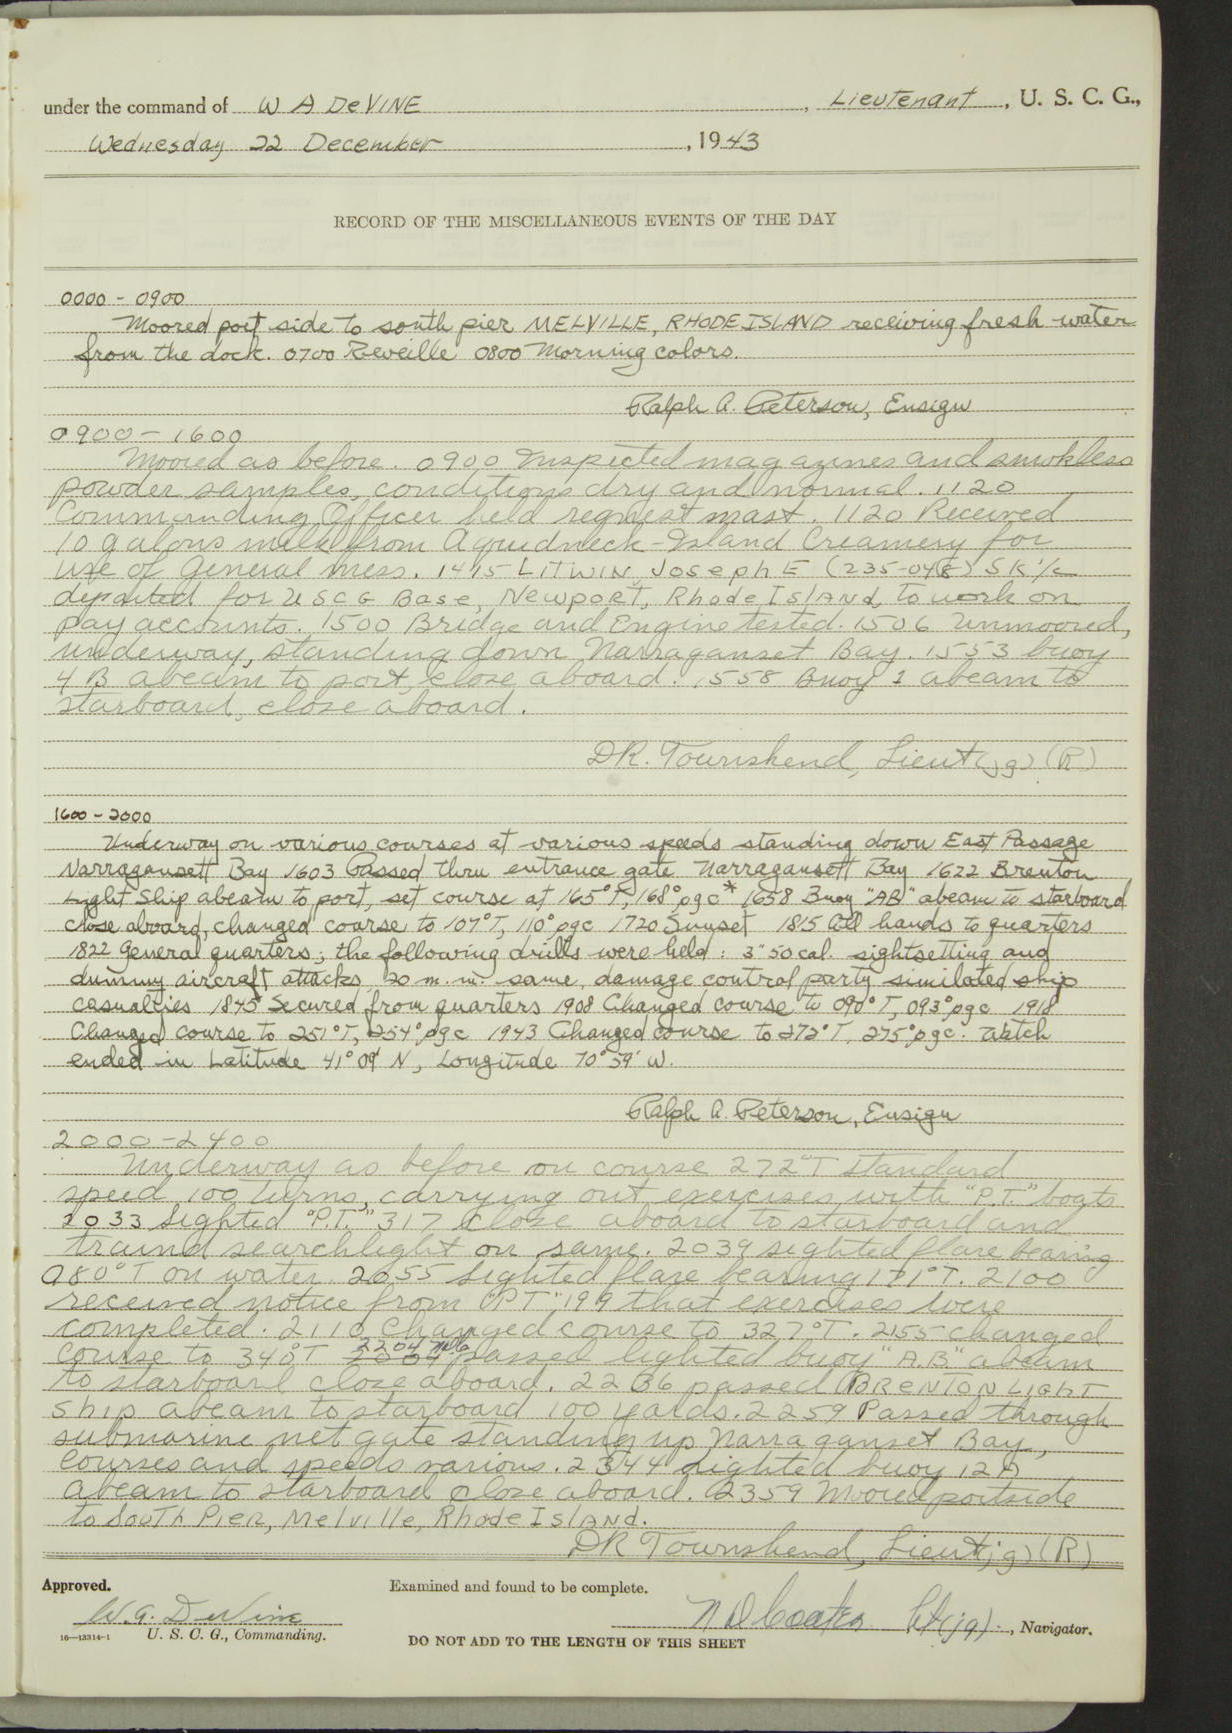 under the command of W A DeVINE, Lieutenant, U. S. C. G.,
Wednesday 22 December, 1943
RECORD OF THE MISCELLANEOUS EVENTS OF THE DAY
0000 - 0900
Moored port side to south pier MELVILLE, RHODE ISLAND receiving fresh water
from the dock. 0700 Reveille 0800 Morning colors.
Ralph A. Peterson, Ensign
0900 - 1600
Moored as before. 0900 Inspected magazines and smokless
powder samples, conditions dry and normal. 1120
Commanding Officer held request mast. 1120 Received
10 galons milk from Aquidneck-Island Creamery for
use of general mess. 1415 LITWIN, Joseph E SK 1/c
departed for USCG Base, Newport, Rhode Island, to work on
pay accounts. 1500 Bridge and Engine tested. 1506 Unmoored,
underway, standing down Narraganset Bay. 1553 buoy
4 B abeam to port, close aboard. 1558 Buoy 1 abeam to
starboard, close aboard.
DR. Townshend, Lieut (jg) (R)
1600 - 2000
Underway on various courses at various speeds standing down East Passage
Narragansett Bay 1603 Passed thru entrance gate Narragansett Bay 1622 Brenton
Light Ship abeam to port, set course at 165°T, 168° pgc* 1658 Buoy "AB" abeam to starboard
close aboard, changed course to 107°T, 110° pgc 1720 Sunset 1815 All hands to quarters
1822 General quarters; the following drills were held: 3" 50 cal. sightsetting and
dummy aircraft attacks 20 m.m. same, damage control party similated ship
casualties 1845 Secured from quarters 1908 Changed course to 090°T, 093° pgc 1918
Changed course to 251°T, 254° pgc 1943 Changed course to 272°T, 275° pgc. Watch
ended in Latitude 41° 09' N, Longitude 70° 59' W.
Ralph A. Peterson, Ensign
2000 - 2400
Underway as before on course 272°T standard
speed, 100 turns, carrying out exercises with "P.T." boats
2033 Sighted "P.T." 317 close aboard to starboard and
traind searchlight on same. 2039 sighted flare bearing
080°T on water. 2055 Sighted flare bearing 171°T. 2100
received notice from "PT" 199 that exercises were
completed. 2110 Changed course to 327°T. 2155 changed
course to 340°T 2204 passed lighted buoy "A.B" abeam
to starboard close aboard. 2236 passed BRENTON LIGHT
Ship abeam to starboard 100 yards. 2259 Passed through
submarine net gate standing up Narraganset Bay,
courses and speeds various. 2344 sighted buoy 12A
abeam to starboard close aboard. 2359 Moored portside
to South Pier, Melville, Rhode Island.
DR Townshend, Lieut(jg) (R)
Approved. Examined and found to be complete.
W. A. DeVine N D Coates Lt (jg), Navigator.
16—13314-1 U. S. C. G., Commanding.
DO NOT ADD TO THE LENGTH OF THIS SHEET